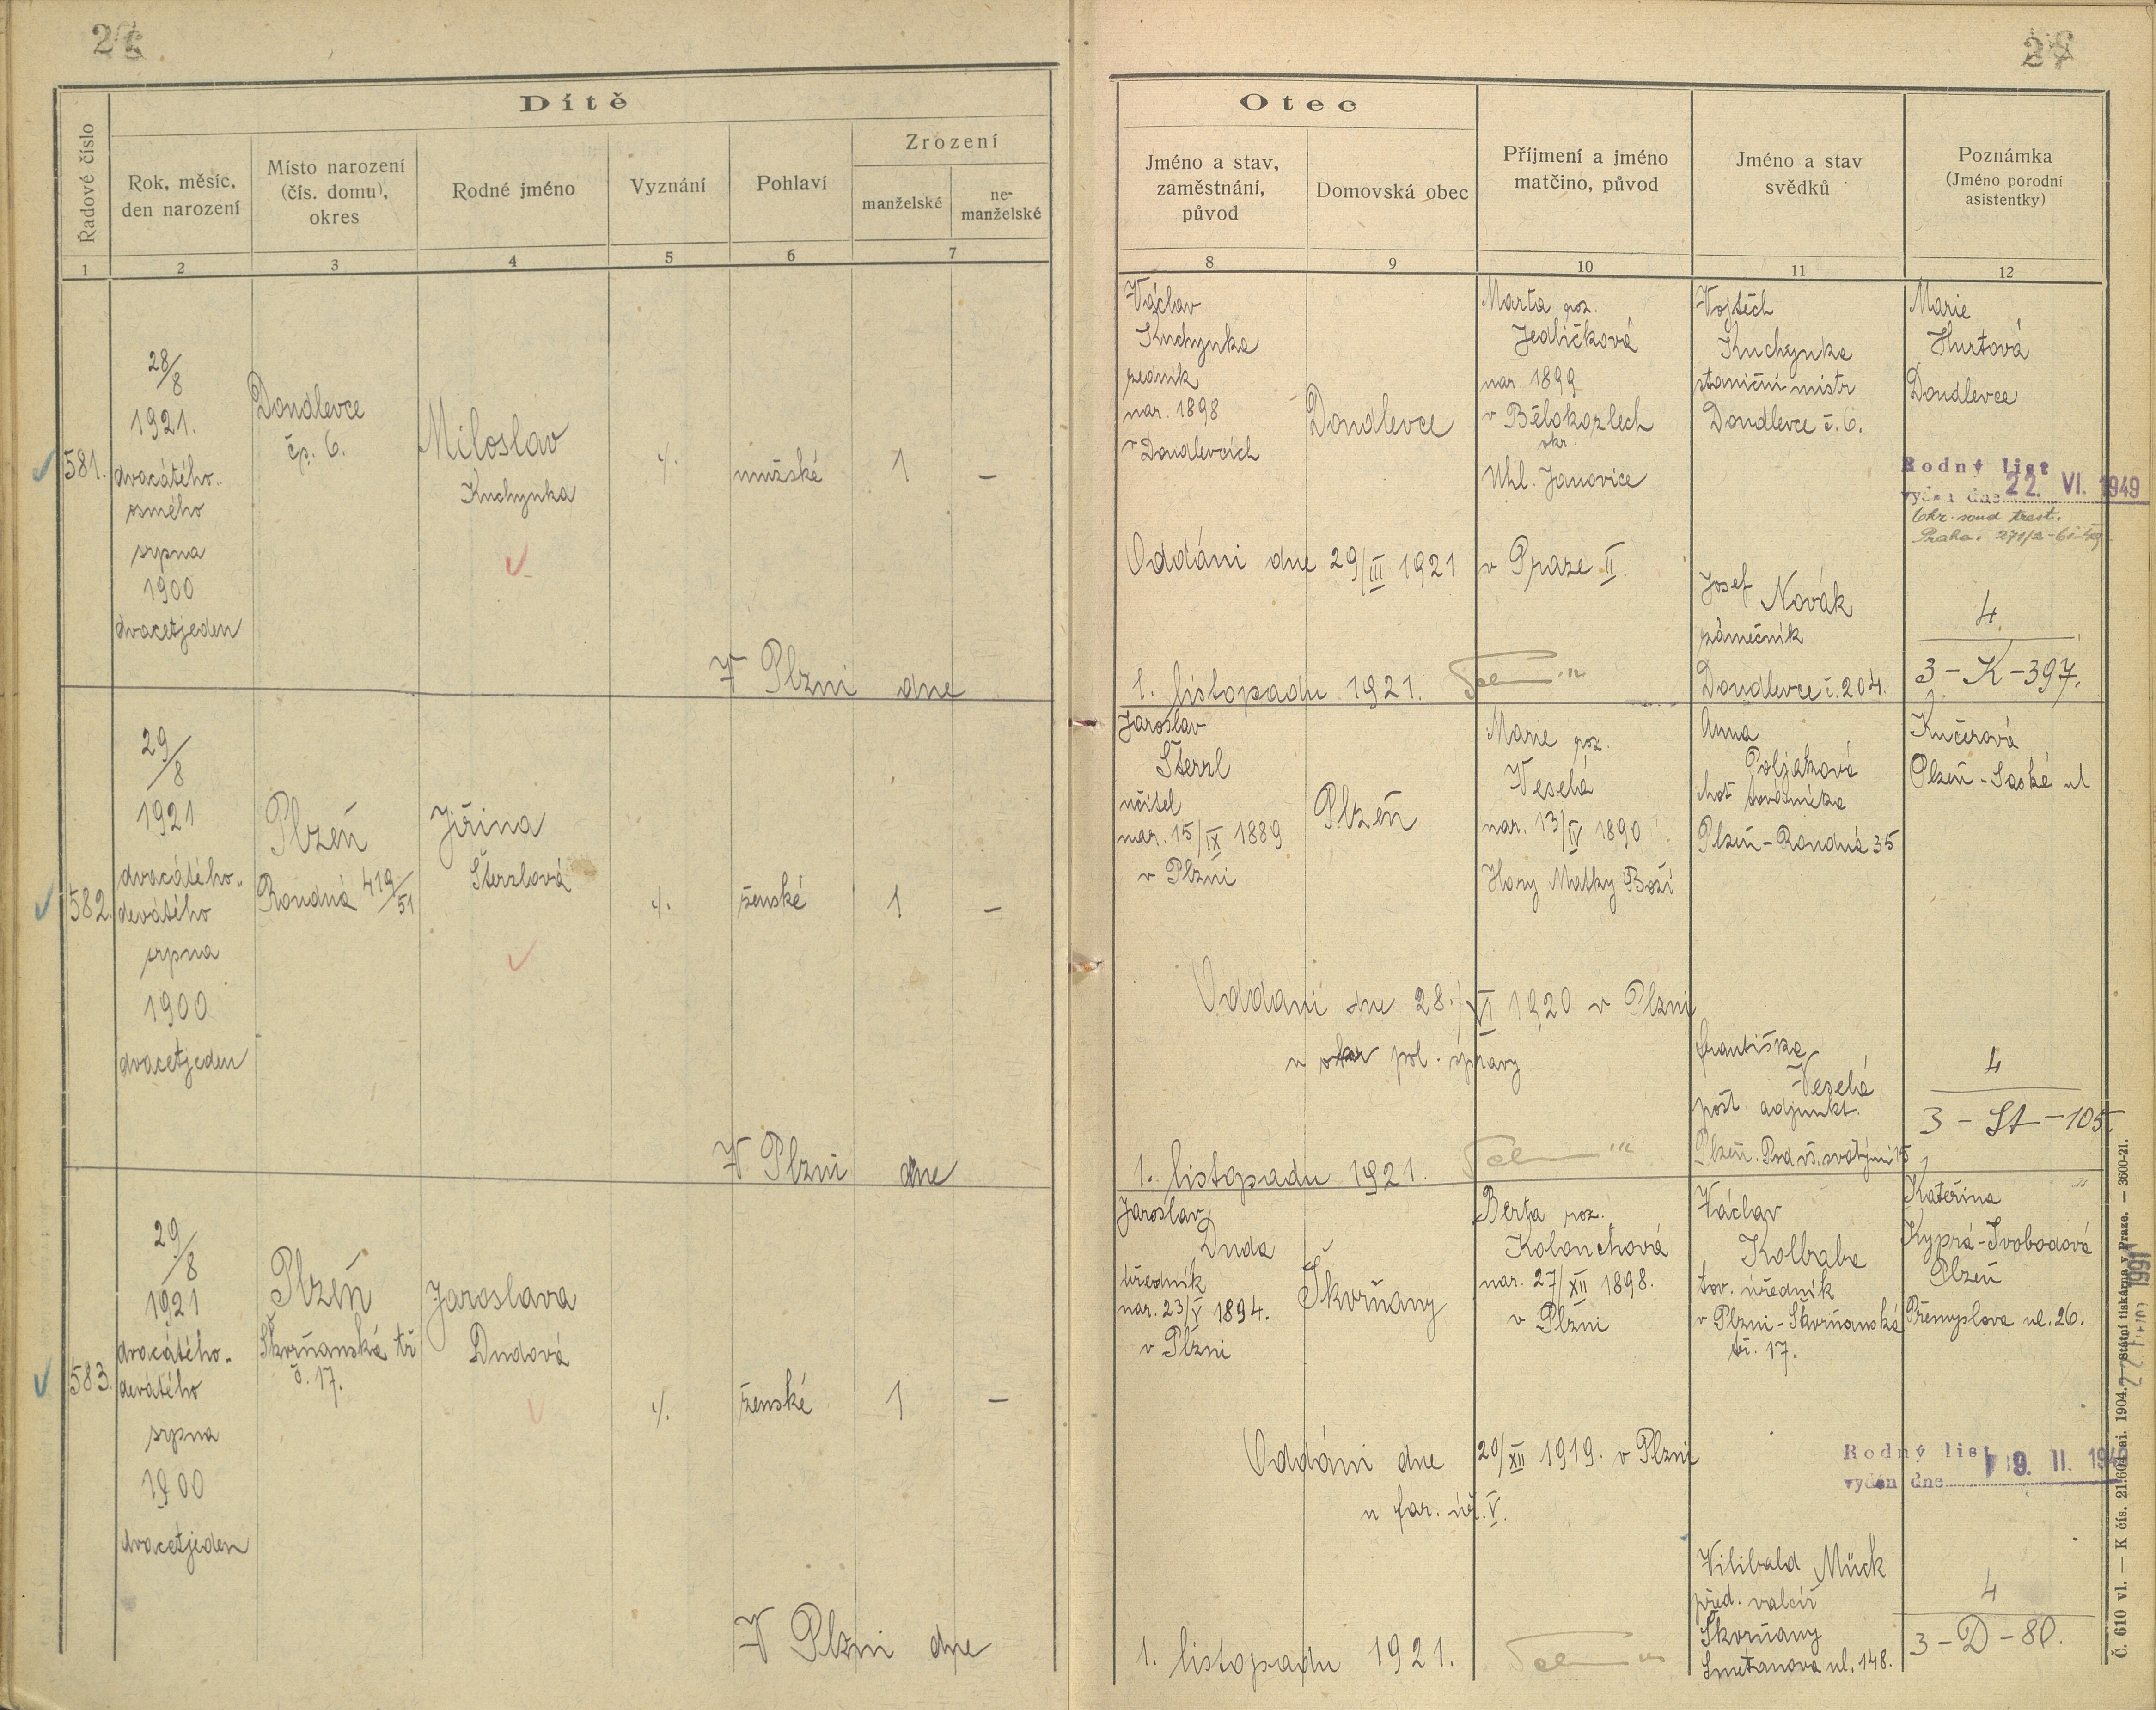 Dítě
Řadové číslo
Rok, měsíc,
den narození
Místo narození
(čís. domu),
okres
Rodné jméno
Vyznání
Pohlaví
Zrození
manželské
ne-
manželské
1 2 3 4 5 6 7
581.
28/8
1921.
dvacátého-
osmého
srpna
1900
dvacetjeden
Doudlevce
čp. 6.
Miloslav
Kuchynka
·/.
mužské
1
–
V Plzni dne
582.
29/8
1921
dvacátého-
devátého
srpna
1900
dvacetjeden
Plzeň
Roudná 419/51
Jiřina
Šterzlová
·/.
ženské
1
–
V Plzni dne
583.
29/8
1921
dvacátého-
devátého
srpna
1900
dvacetjeden
Plzeň
Škvrňanská tř
č. 17.
Jaroslava
Dudová
·/.
ženské
1
–
V Plzni dne
Otec
Jméno a stav,
zaměstnání,
původ
Domovská obec
Příjmení a jméno
matčino, původ
Jméno a stav
svědků
Poznámka
(Jméno porodní
asistentky)
8 9 10 11 12
Václav
Kuchynka
zedník
nar. 1898
v Doudlevcích
Doudlevce
Marta roz.
Jedličková
nar. 1899
v Bělokozlech
okr.
Uhl. Janovice
Vojtěch
Kuchynka
staniční mistr
Doudlevce č. 6.
Marie
Hurtová
Doudlevce
Rodný list
vydán dne 22. VI. 1949
Praha
Oddáni dne 29/III 1921 v Praze II.
Josef Novák
zámečník
Doudlevce č. 204.
4.
3-K-397.
1. listopadu 1921.
Jaroslav
Šterzl
učitel
nar. 15/IX 1889
v Plzni
Plzeň
Marie roz.
Veselá
nar. 13/IV 1890
Hory Matky Boží
Anna
Poljaková
chot továrníka
Plzeň-Roudná 35
Kučerová
Plzeň-Saská ul
Oddáni dne 28./VI 1920 v Plzni
u pol. správy
Františka
Veselá
pošt. adjunkt.
Plzeň. Pod vš. svatými 15
4
3-St-105.
1. listopadu 1921.
Jaroslav
Duda
úředník
nar. 23/V 1894.
v Plzni
Škvrňany
Berta roz.
Kolouchová
nar. 27/XII 1898.
v Plzni
Václav
Kolbaba
tov. úředník
v Plzni-Škvrňanská
tř. 17.
Kateřina
Kyprá-Svobodová
Plzeň
Přemyslova ul. 26.
Oddáni dne 20/XII 1919. v Plzni
u far. úř. V.
Rodný list
vydán dne 9. II.
Vilibald Mück
před. valcíř
Škvrňany
Smetanova ul. 148.
4
3-D-80.
1. listopadu 1921.
Č. 610 vl. — K čís. 21.604 ai. 1904. — Státní tiskárna v Praze. — 3600-21.